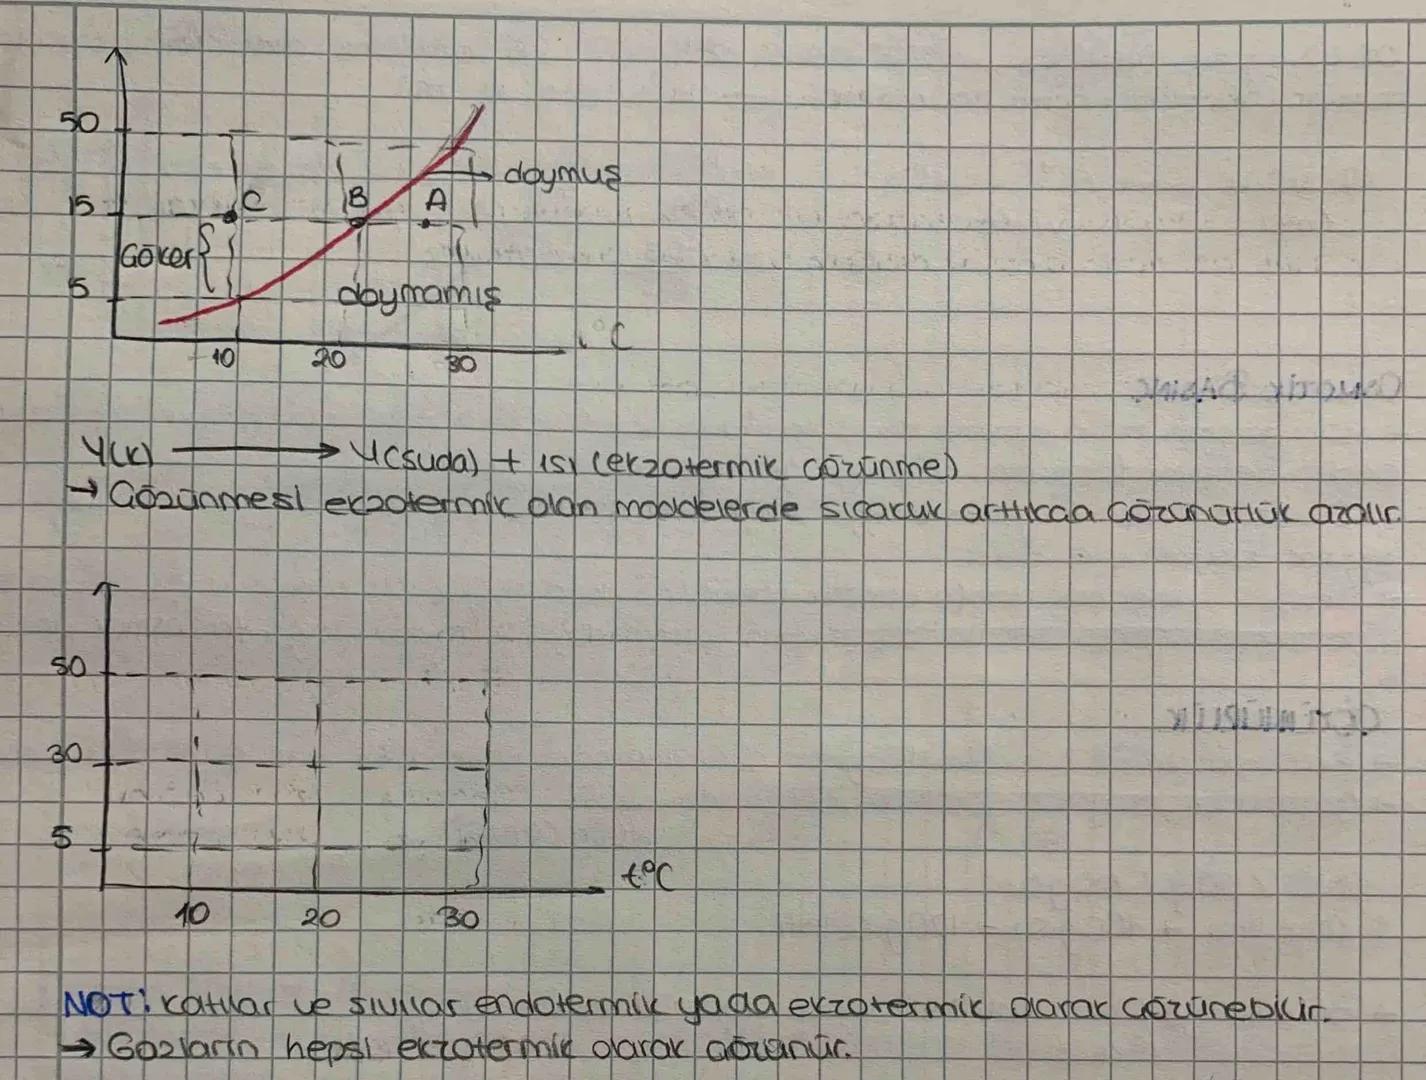 50
doymuş
15 C B A
Çöker
5
doymamış
°C
10 20 30
Y(k) → Y(suda) + ısı (ekzotermik çözünme)
→ Çözünmesi ekzotermik olan maddelerde sıcaklık arttıkça çözünürlük azalır
50
30
5
t°C
10 20 30
NOT: Katılar ve sıvılar endotermik yada ekzotermik olarak çözünebilir.
→ Gazların hepsi ekzotermik olarak çözünür.